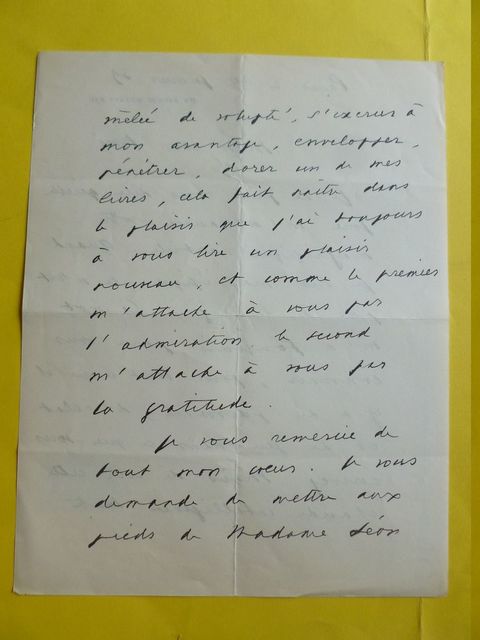 mêlée de volupté, s'exercer à
mon avantage, envelopper,
pénétrer, dorer un de mes
livres, cela fait naître dans
le plaisir que j'ai toujours
à vous lire un plaisir
nouveau, et comme le premier
m'attache à vous par
l'admiration le second
m'attache à vous par
la gratitude.
Je vous remercie de
tout mon coeur. Je vous
demande de mettre aux
pieds de Madame Léon